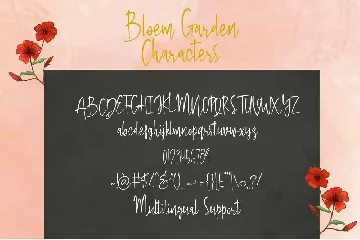 Bloem Garden
Characters
ABCDEFGHIJKLMNOPQRSTUVWXYZ
abcdefghijklmnopqrstuvwxyz
0123456789
Multilingual Support